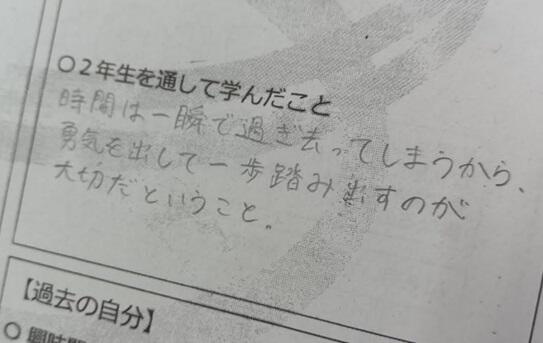 ○2年生を通して学んだこと
時間は一瞬で過ぎ去ってしまうから、
勇気を出して一歩踏み出すのが
大切だということ。
【過去の自分】
○興味関